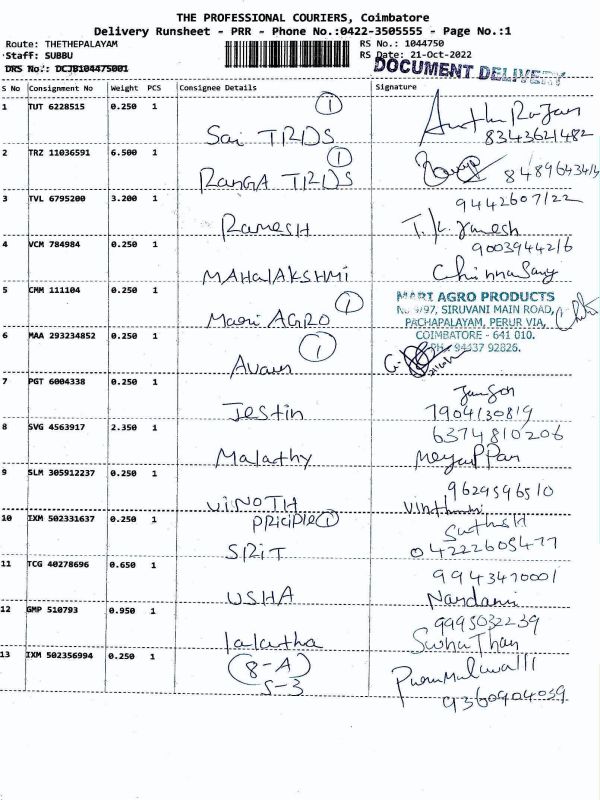 THE PROFESSIONAL COURIERS, Coimbatore
Delivery Runsheet - PRR - Phone No.:0422-3505555 - Page No.:1
Route: THETHEPALAYAM RS No.: 1044750
Staff: SUBBU RS Date: 21-Oct-2022
DRS No.: DCJB104475001 DOCUMENT DELIVERY
S No Consignment No Weight PCS Consignee Details Signature
1 TUT 6228515 0.250 1 ①
Sai TRDS 8343621482
2 TRZ 11036591 6.500 1 ①
RANGA TRDS
3 TVL 6795200 3.200 1 9442607122
RAMESH
4 VCM 784984 0.250 1 9003944216
MAHAlAKSHMi
5 CMM 111104 0.250 1 ①
MARI AGRO PRODUCTS
No 9/97, SIRUVANI MAIN ROAD,
PACHAPALAYAM, PERUR VIA,
COIMBATORE - 641 010.
PH: 94437 92826.
Mari AGRO
6 MAA 293234852 0.250 1 ①
7 PGT 6004338 0.250 1
Jestin 7904130819
8 SVG 4563917 2.350 1 6374810206
Malathy
9 SLM 305912237 0.250 1 9629596510
ViNOTH
10 IXM 502331637 0.250 1 ①
SRiT
11 TCG 40278696 0.650 1 9943470001
USHA Nandani
12 GMP 510793 0.950 1 9995032239
lalatha
13 IXM 502356994 0.250 1 (8-A)
S-3 9360904059